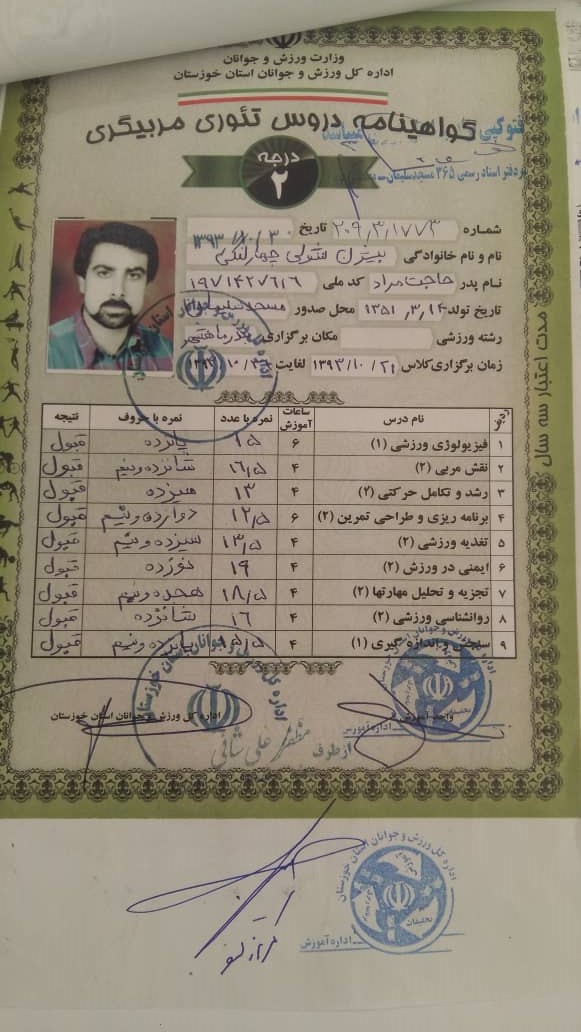 وزارت ورزش و جوانان
اداره کل ورزش و جوانان استان خوزستان
گواهینامه دروس تئوری مربیگری
فتوکپی
درجه
۲
دفتر اسناد رسمی ۳۶۵ مسجدسلیمان
شماره ۲۰۹/۳/۱۷۷۳ تاریخ ۱۳۹۳/۱۰/۳۰
نام و نام خانوادگی بیژن
نام پدر حاجت مراد کد ملی ۱۹۷۱۴۲۷۶۱۶
تاریخ تولد ۱۳۵۱/۳/۱۴ محل صدور مسجدسلیمان
رشته ورزشی مکان برگزاری بندرماهشهر
زمان برگزاری کلاس ۱۳۹۳/۱۰/۲۱ لغایت
ردیف نام درس ساعات آموزش نمره با عدد نمره با حروف نتیجه
۱ فیزیولوژی ورزشی (۱) ۶ ۱۵ پانزده قبول
۲ نقش مربی (۲) ۴ ۱۶/۵ شانزده ونیم قبول
۳ رشد و تکامل حرکتی (۲) ۴ ۱۳ سیزده قبول
۴ برنامه ریزی و طراحی تمرین (۲) ۶ ۱۲/۵ دوازده ونیم قبول
۵ تغذیه ورزشی (۲) ۴ ۱۳/۵ سیزده ونیم قبول
۶ ایمنی در ورزش (۲) ۴ ۱۹ نوزده قبول
۷ تجزیه و تحلیل مهارتها (۲) ۴ ۱۸/۵ هجده ونیم قبول
۸ روانشناسی ورزشی (۲) ۴ ۱۶ شانزده قبول
۹ سنجش و اندازه گیری (۱) ۴ ۱۵/۵ پانزده ونیم قبول
مدت اعتبار سه سال
واحد آموزش
اداره کل ورزش و جوانان استان خوزستان
اداره آموزش
از طرف
اداره کل ورزش و جوانان استان خوزستان
اداره آموزش